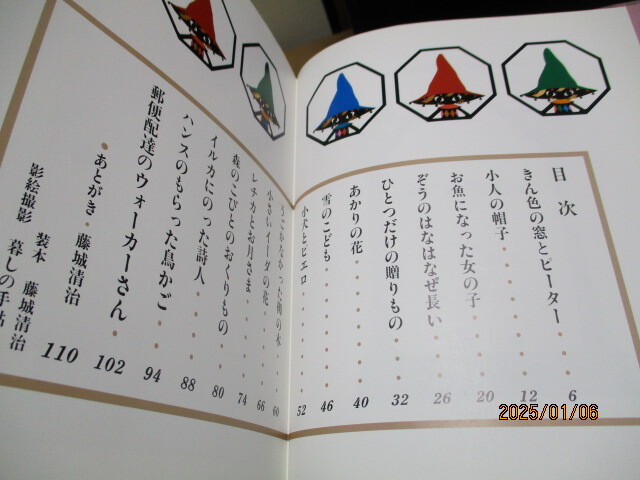 目次
きん色の窓とピーター・・・・ 6
小人の帽子・・・・・・ 12
お魚になった女の子・・・・ 20
ぞうのはなはなぜ長い・・・ 26
ひとつだけの贈りもの・・・ 32
あかりの花・・・・・・ 40
雪のこども・・・・・・ 46
小犬とピエロ・・・・・ 52
60
小さいイーダの花・・・・ 66
レチカとお月さま・・・・ 74
森のこびとのおくりもの・・・ 80
イルカにのった詩人・・・・ 88
ハンスのもらった鳥かご・・・ 94
郵便配達のウォーカーさん・ 102
・あとがき・藤城清治 110
影絵撮影 装本 藤城清治
暮しの手帖
2025/01/06